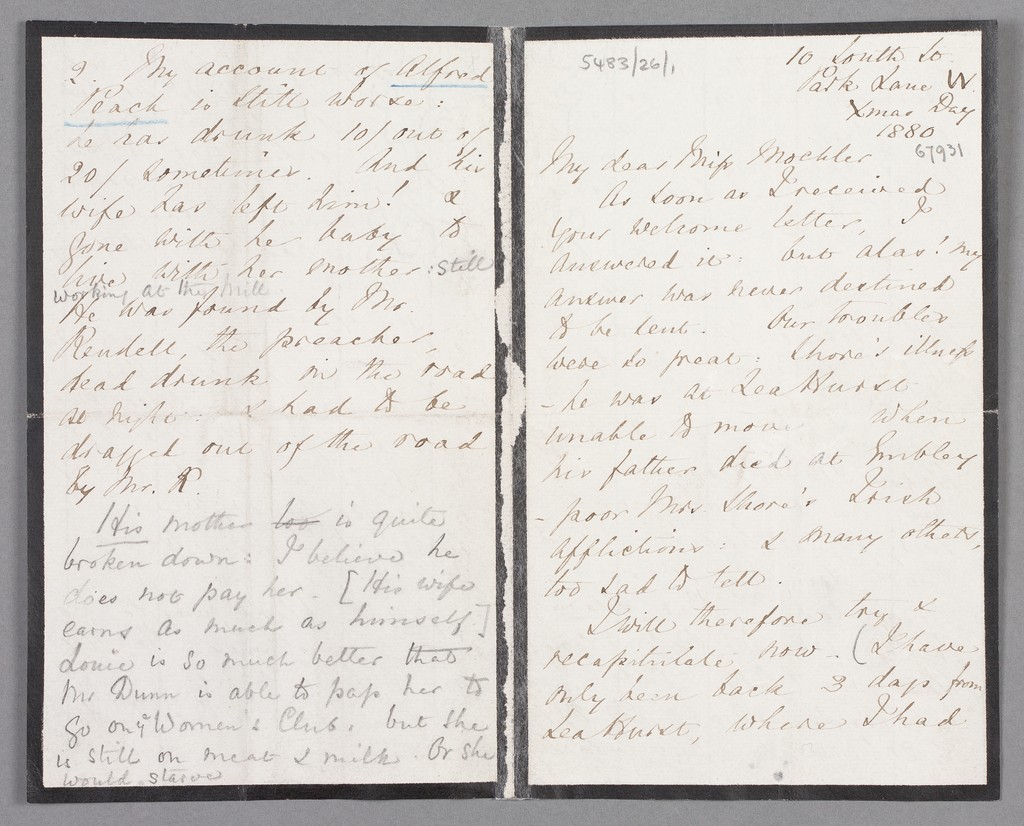 5483/26/1
10 South St.
Park Lane W.
Xmas Day
1880
67931
My dear Miss Mochler
As soon as I received
your welcome letter, I
answered it: but alas! my
answer was never destined
to be sent. Our troubles
were so great: Shore's illness
- he was at Lea Hurst
unable to move when
his father died at Embley
- poor Mrs Shore's Irish
afflictions: & many others,
too sad to tell.
I will therefore try &
recapitulate now - (I have
only been back 3 days from
Lea Hurst, where I had
2. My account of Alfred
Peach is still worse:
he has drunk 10/ out of
20/ sometimes. And his
wife has left him! &
gone with he baby to
live with her mother: still
working at the Mill
He was found by Mr.
Rendell, the preacher,
dead drunk in the road
at night: & had to be
dragged out of the road
by Mr. R.
His mother too is quite
broken down: I believe he
does not pay her. [His wife
earns as much as himself.]
Louie is so much better that
Mr Dunn is able to pass her to
go on ye Women's Club. but she
is still on meat & milk. Or she
would starve